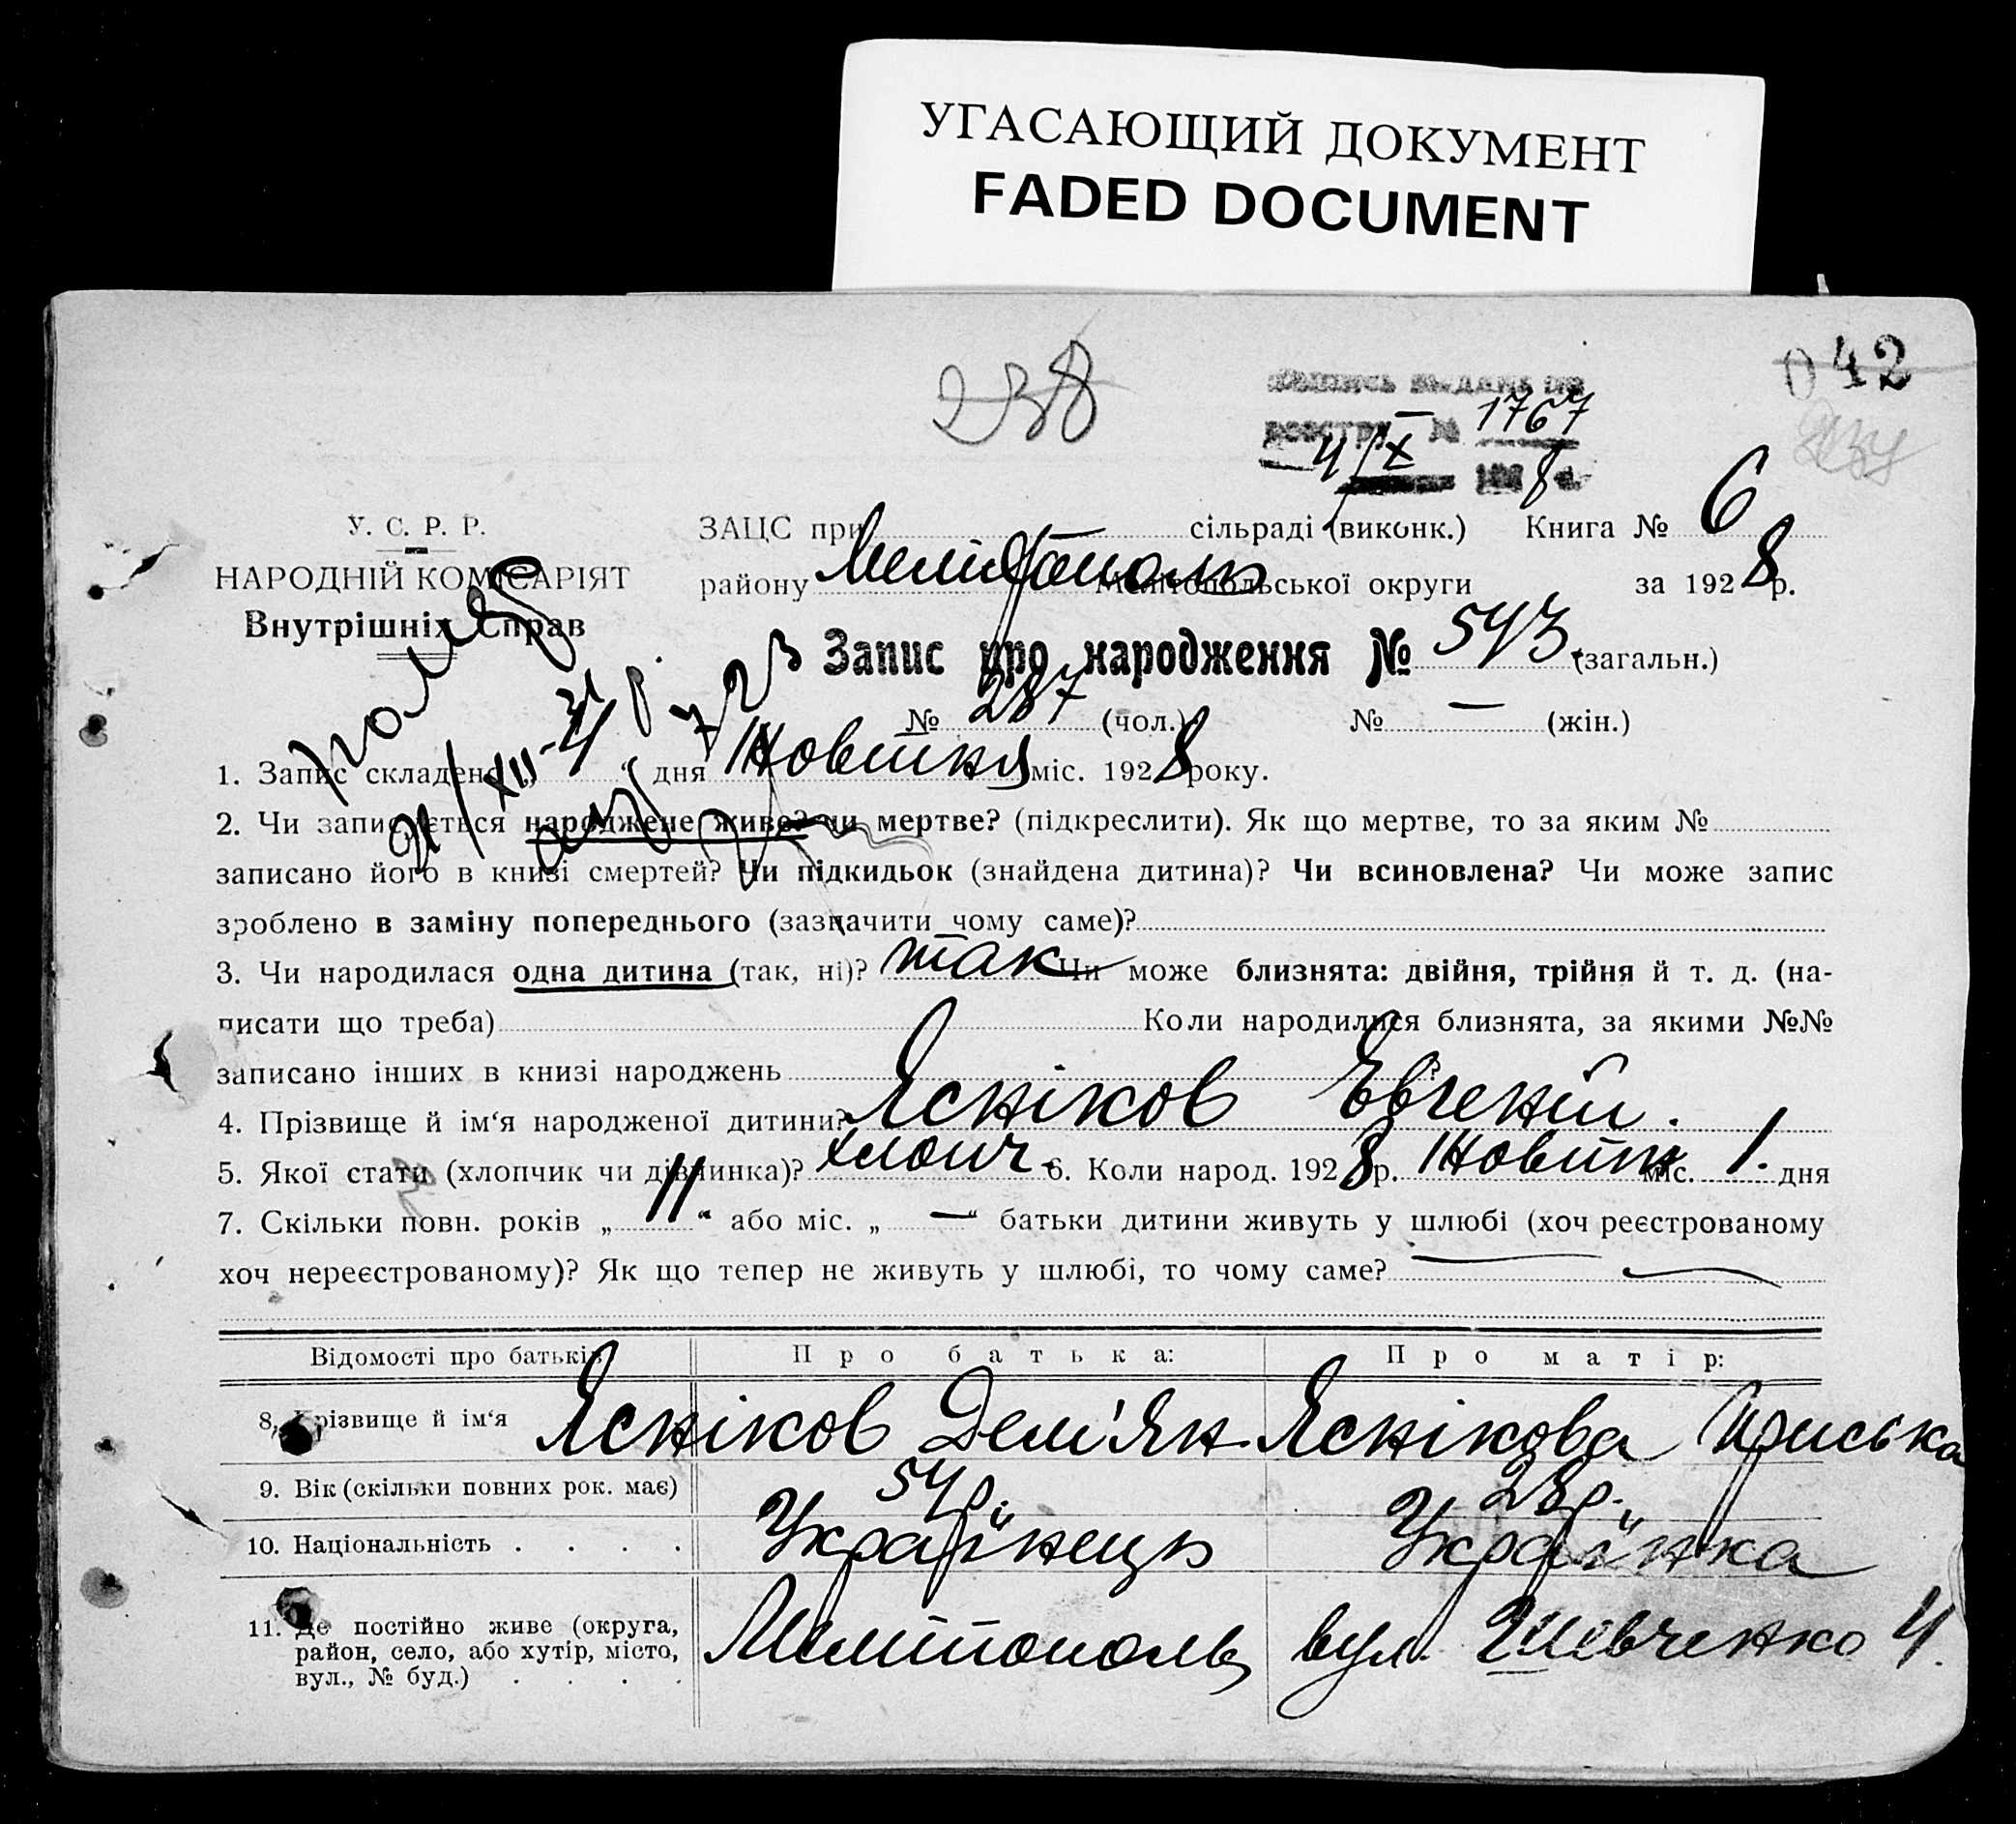 УГАСАЮЩИЙ ДОКУМЕНТ
FADED DOCUMENT
042
238
1767
4/X 8
У. С. Р. Р.
НАРОДНІЙ КОМІСАРІЯТ
Внутрішніх Справ
ЗАЦС при сільраді (виконк.) Книга № 6
району Мелітополь Мелітопольської округи за 1928 р.
Запис про народження № 543 (загальн.)
№ 287 (чол.) № — (жін.)
1. Запис складено „4“ дня Жовтня міс. 1928 року.
2. Чи записується народжене живе? чи мертве? (підкреслити). Як що мертве, то за яким №
записано його в книзі смертей? Чи підкидьок (знайдена дитина)? Чи всиновлена? Чи може запис
зроблено в заміну попереднього (зазначити чому саме)?
3. Чи народилася одна дитина (так, ні)? так Чи може близнята: двійня, трійня й т. д. (на-
писати що треба) Коли народилися близнята, за якими №№
записано інших в книзі народжень ?
4. Прізвище й ім‘я народженої дитини? Ясніков Євгеній.
5. Якої стати (хлопчик чи дівчинка)? хлопч. 6. Коли народ. 1928 р. Жовтн міс. 1. дня
7. Скільки повн. років „11“ або міс. „—“ батьки дитини живуть у шлюбі (хоч реєстрованому
хоч нереєстрованому)? Як що тепер не живуть у шлюбі, то чому саме? —
Відомості про батьків Про батька: Про матір:
8. Прізвище й ім‘я Ясніков Дем'ян Яснікова Приська
9. Вік (скільки повних рок. має) 54 р. 28 р.
10. Національність . . . . Українець Українка
11. Де постійно живе (округа,
район, село, або хутір, місто,
вул., № буд.) . . . . Мелітополь вул. Шевченко 4.